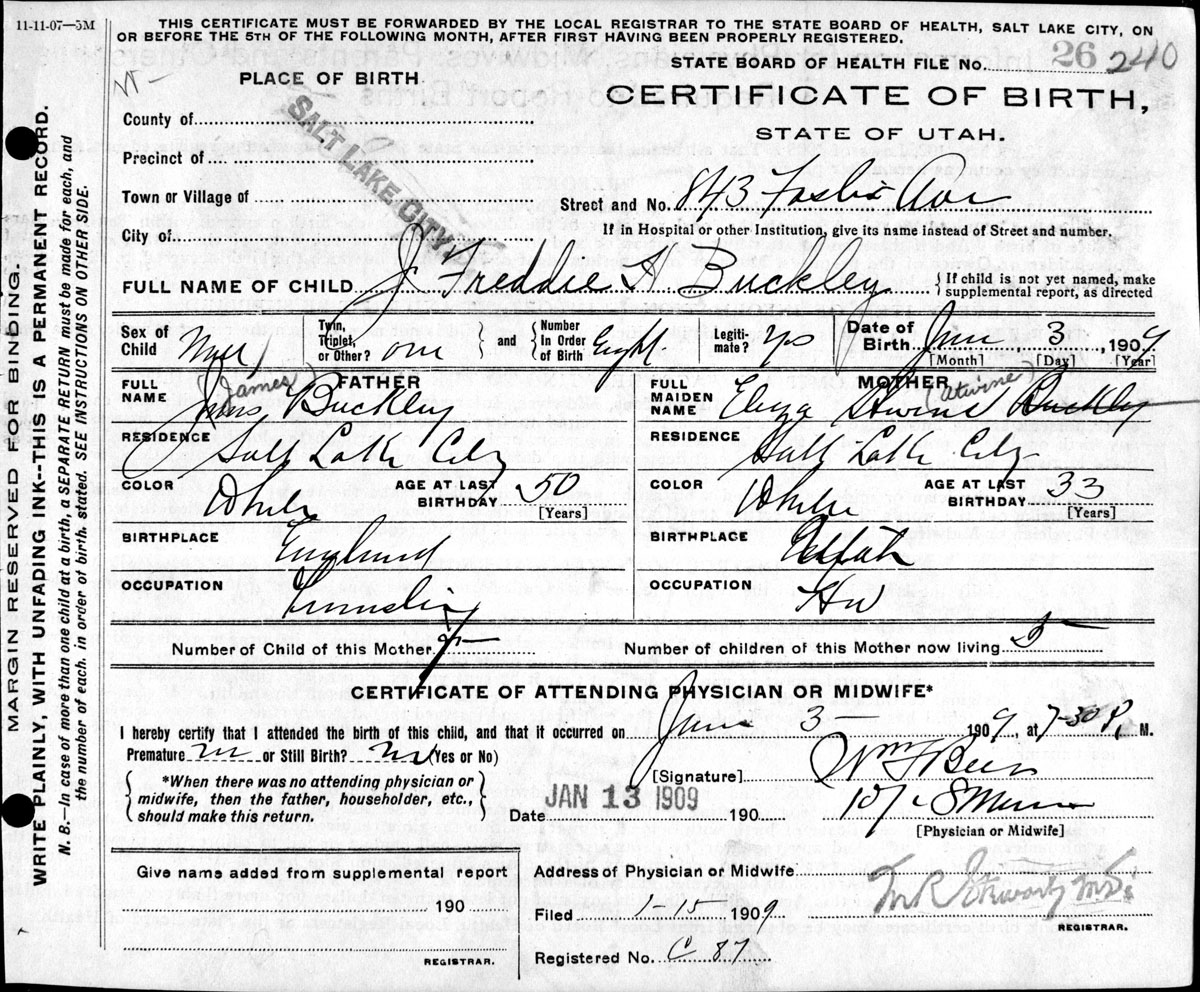 11-11-07—5M
THIS CERTIFICATE MUST BE FORWARDED BY THE LOCAL REGISTRAR TO THE STATE BOARD OF HEALTH, SALT LAKE CITY, ON
OR BEFORE THE 5TH OF THE FOLLOWING MONTH, AFTER FIRST HAVING BEEN PROPERLY REGISTERED.
STATE BOARD OF HEALTH FILE No. 26 240
PLACE OF BIRTH
CERTIFICATE OF BIRTH,
STATE OF UTAH.
County of
Precinct of
Town or Village of
City of
SALT LAKE CITY
Street and No. 843 Ave
If in Hospital or other Institution, give its name instead of Street and number.
FULL NAME OF CHILD J Freddie A Buckley
If child is not yet named, make
supplemental report, as directed
Sex of
Child
Twin,
Triplet,
or Other? one
and
Number
In Order
of Birth Eight
Legiti-
mate? Yes
Date of
Birth 3, 1909
[Month] [Day] [Year]
FULL
NAME
FATHER
(James)
Buckley
FULL
MAIDEN
NAME
MOTHER
(Atwine)
Eliza Buckley
RESIDENCE
Salt Lake City
RESIDENCE
Salt Lake City
COLOR
White
AGE AT LAST
BIRTHDAY 50
[Years]
COLOR
White
AGE AT LAST
BIRTHDAY 33
[Years]
BIRTHPLACE
England
BIRTHPLACE
Utah
OCCUPATION
OCCUPATION
HW
Number of Child of this Mother
Number of children of this Mother now living 5
CERTIFICATE OF ATTENDING PHYSICIAN OR MIDWIFE*
I hereby certify that I attended the birth of this child, and that it occurred on 3 1909, at 7-30 P. M.
Premature no or Still Birth? no (Yes or No)
*When there was no attending physician or
midwife, then the father, householder, etc.,
should make this return.
[Signature] Wm F Beer
Date JAN 13 1909 190
[Physician or Midwife]
Give name added from supplemental report
190
REGISTRAR.
Address of Physician or Midwife
Filed 1-15 1909
REGISTRAR.
Registered No. C 87
MARGIN RESERVED FOR BINDING.
WRITE PLAINLY, WITH UNFADING INK--THIS IS A PERMANENT RECORD.
N. B.—In case of more than one child at a birth, a SEPARATE RETURN must be made for each, and
the number of each, in order of birth, stated. SEE INSTRUCTIONS ON OTHER SIDE.